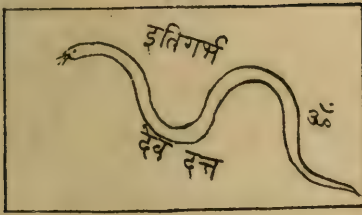 इतिगर्भ
ॐ
देव दत्त